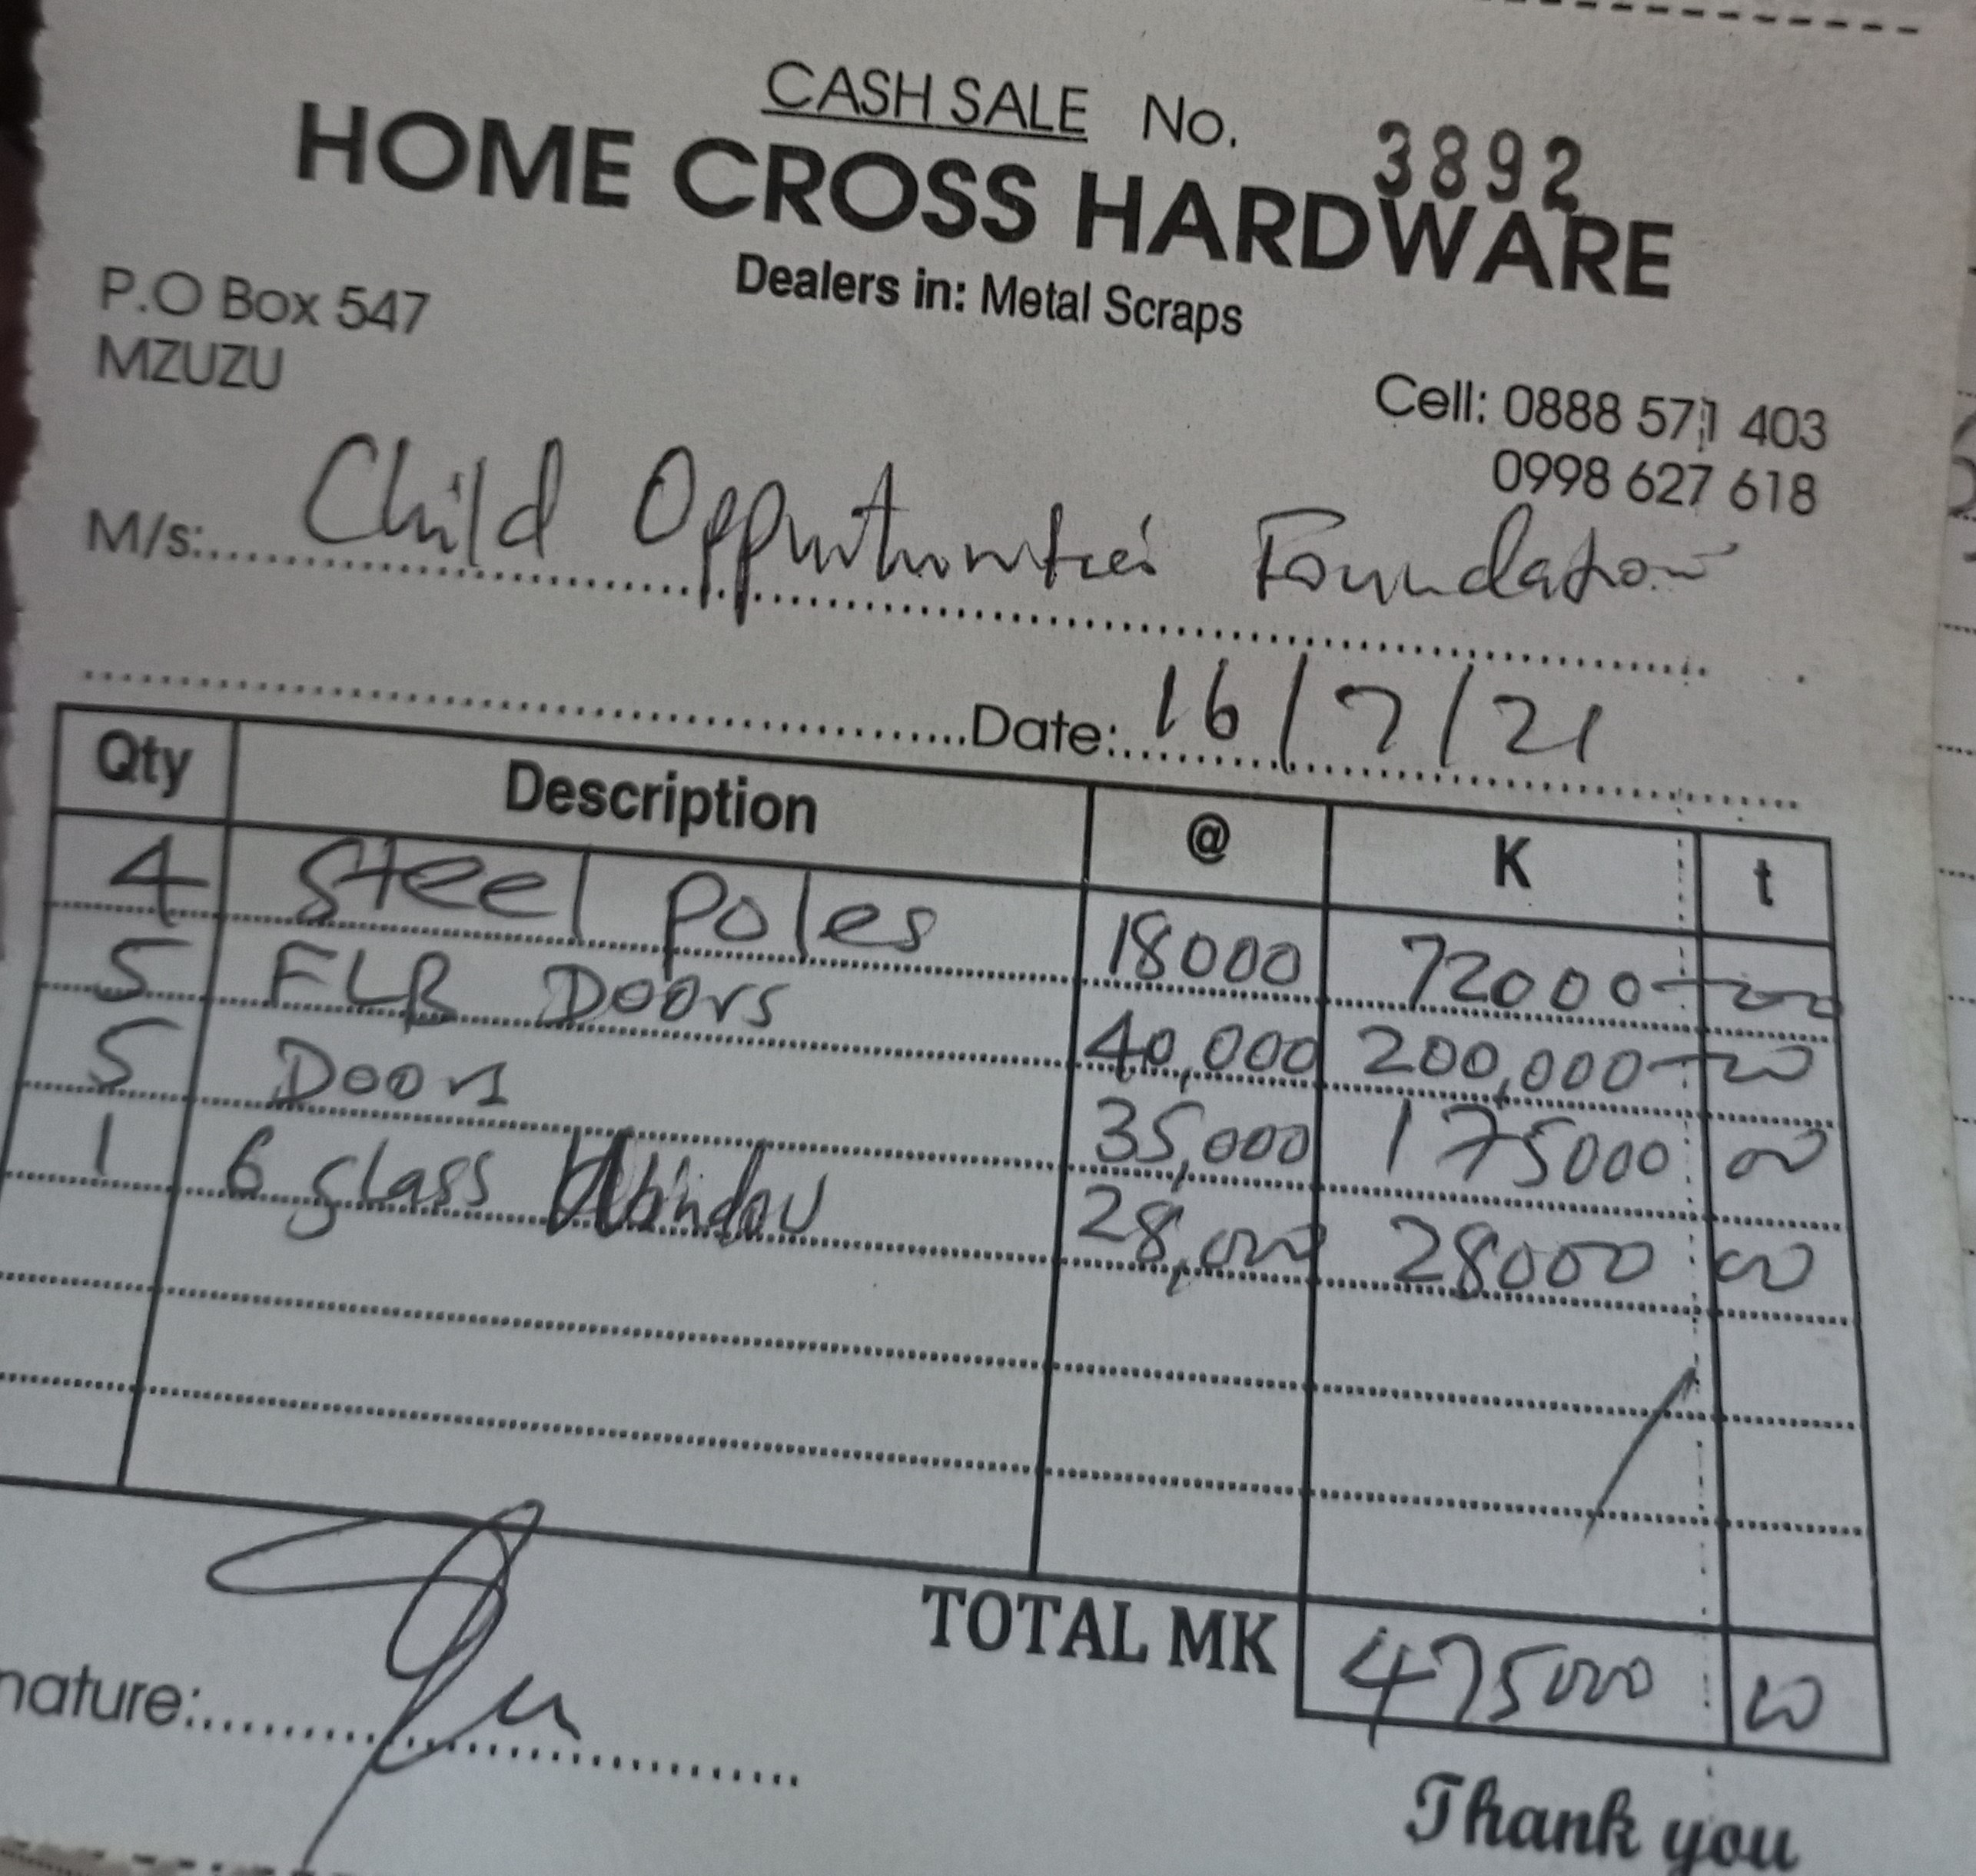 CASH SALE No. 3892
HOME CROSS HARDWARE
Dealers in: Metal Scraps
P.O Box 547
MZUZU
Cell: 0888 571 403
0998 627 618
M/s: Child Opportunities Foundation
Date: 16/7/21
Qty Description @ K t
4 Steel poles 18000 72000 00
5 FLB Doors 40,000 200,000 00
5 Doors 35,000 175000 00
1 6 glass Window 28,000 28000 00
TOTAL MK 475000 00
nature:
Thank you